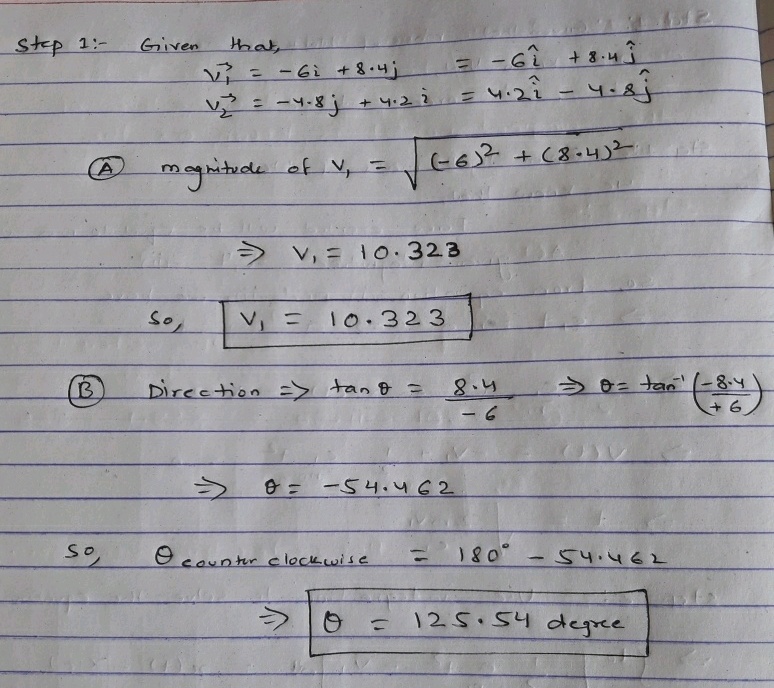 Step 1:- Given that,
v₁⃗ = -6i + 8.4j = -6î + 8.4ĵ
v₂⃗ = -4.8j + 4.2i = 4.2î - 4.8ĵ
Ⓐ magnitude of v₁ = √((-6)² + (8.4)²)
⇒ v₁ = 10.323
So, v₁ = 10.323
Ⓑ Direction ⇒ tan θ = 8.4/-6 ⇒ θ = tan⁻¹(-8.4/+6)
⇒ θ = -54.462
So, θ counter clockwise = 180° - 54.462
⇒ θ = 125.54 degree